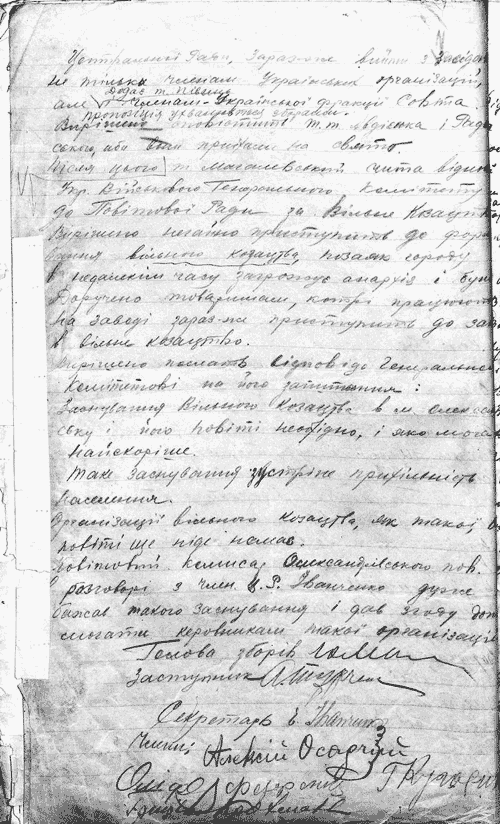 Центральної Ради. Зараз же вийти з засідан
не тільки членам Українських організацій,
але
і членам Української фракції Совета.
пропозиція ухвалюється зборами.
Вирішено оповістити т.т. Авдієнка і Рад
ського, аби вони приїхали на свято.
Після цього т. Магалевський чита відноше
Укр. Військового Генерального Комітету
до Повітової Ради за Вільне Козацтво
Вирішено негайно приступить до форм
вання вільного козацтва позаяк городу
в недалекім часу загрожує анархія і бун
Доручено товаришам, котрі працюють
на заводі зараз-же приступить до за
в вільне козацтво.
Вирішено послать відповідь до Генерально
Комітетові на його запитання:
Заснування Вільного Козацтва в м. Олексан
ську і його повіті необхідно, і яко мога
найскоріше.
Таке заснування зустріне прихільність
населення.
Організації вільного козацтва, як такої, в
повіті ще ніде немає.
Повітовий комисар Олександрівського пов.
в разговорі з член. Ц. Р. Іванченко дуже
бажав такого заснування і дав згоду доп
смагати керовникам такої організації
Голова зборів
Заступник
Секретарь Є. Іванченко
Члени: Алексій Осадчий